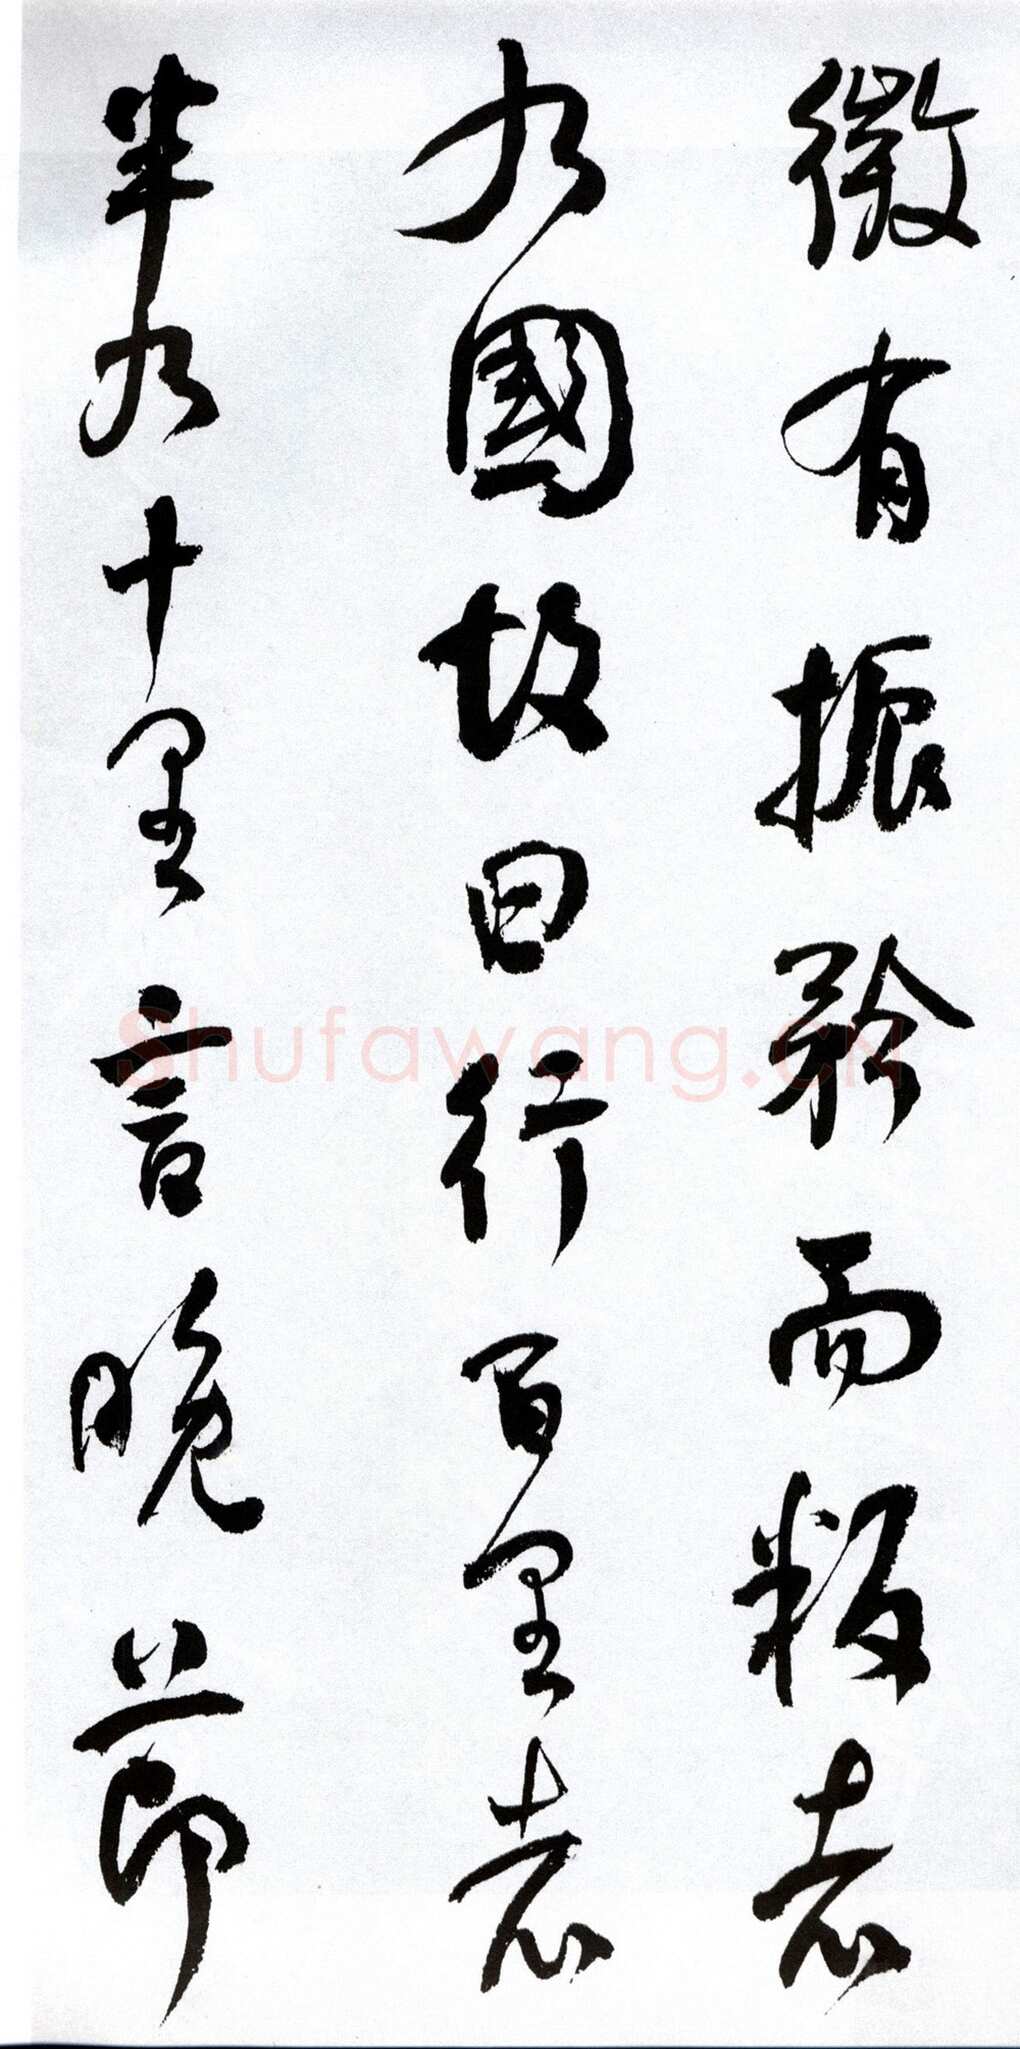 微有振矜而叛者
九國故曰行百里者
半九十里言晚節
Shufawang.cn